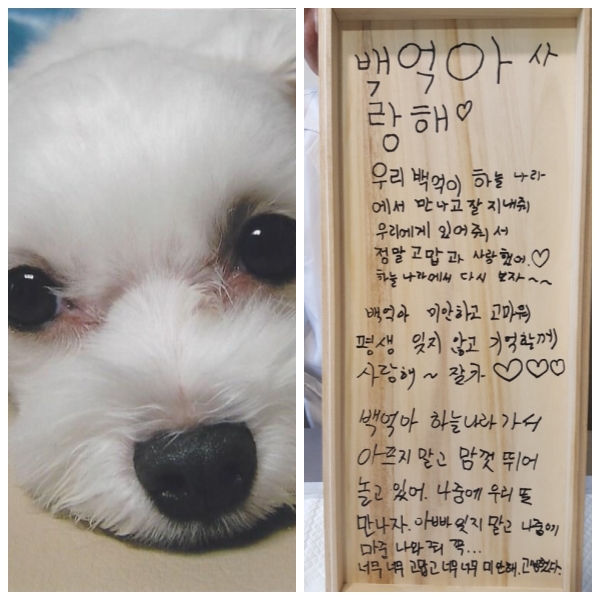 백억아 사
랑해♡
우리 백억이 하늘 나라
에서 만나고 잘 지내줘
우리에게 있어줘서
정말 고맙고 사랑했어.♡
하늘 나라에서 다시 보자~~
백억아 미안하고 고마워
평생 잊지 않고 기억할께
사랑해~ 잘가 ♡♡♡
백억아 하늘나라 가서
아프지 말고 맘껏 뛰어
놀고 있어. 나중에 우리 또
만나자. 아빠 잊지 말고 나중에
마중 나와 줘 꼭...
너무 너무 고맙고 너무 너무 미안해. 고생했다.